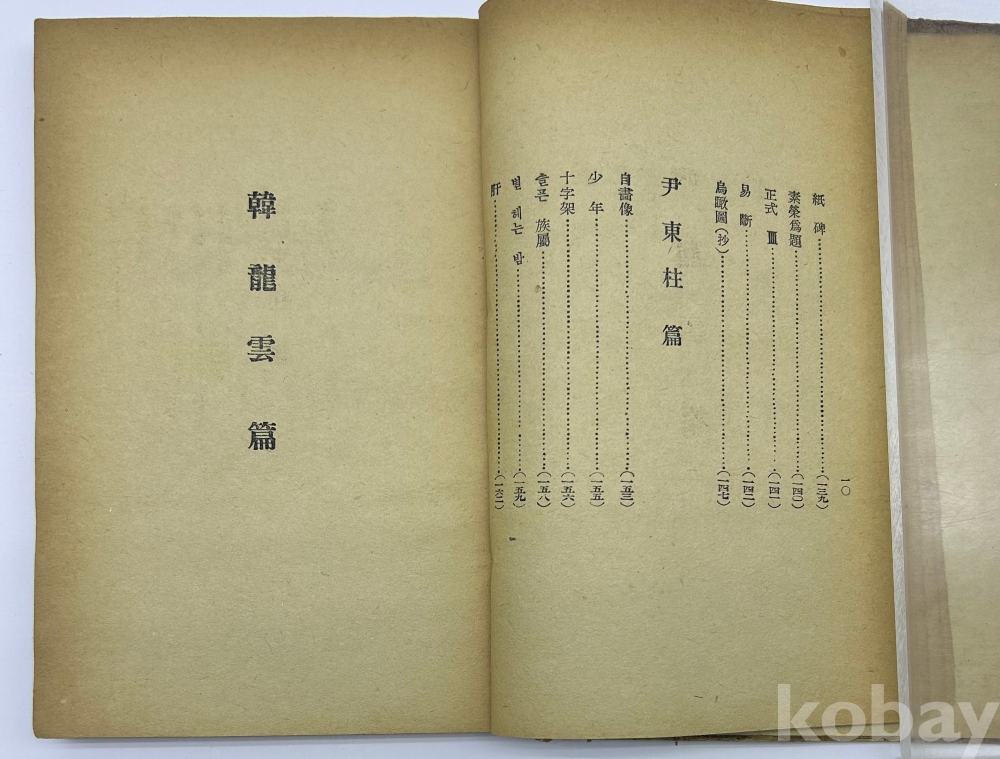 一〇
紙碑……(一三九)
素榮爲題……(一四〇)
正式 Ⅲ……(一四一)
易斷……(一四二)
烏瞰圖(抄)……(一四七)
尹東柱篇
自畵像……(一五三)
少年……(一五五)
十字架……(一五六)
슬픈 族屬……(一五八)
별 헤는 밤……(一五九)
肝……(一六二)
韓龍雲篇
kobay